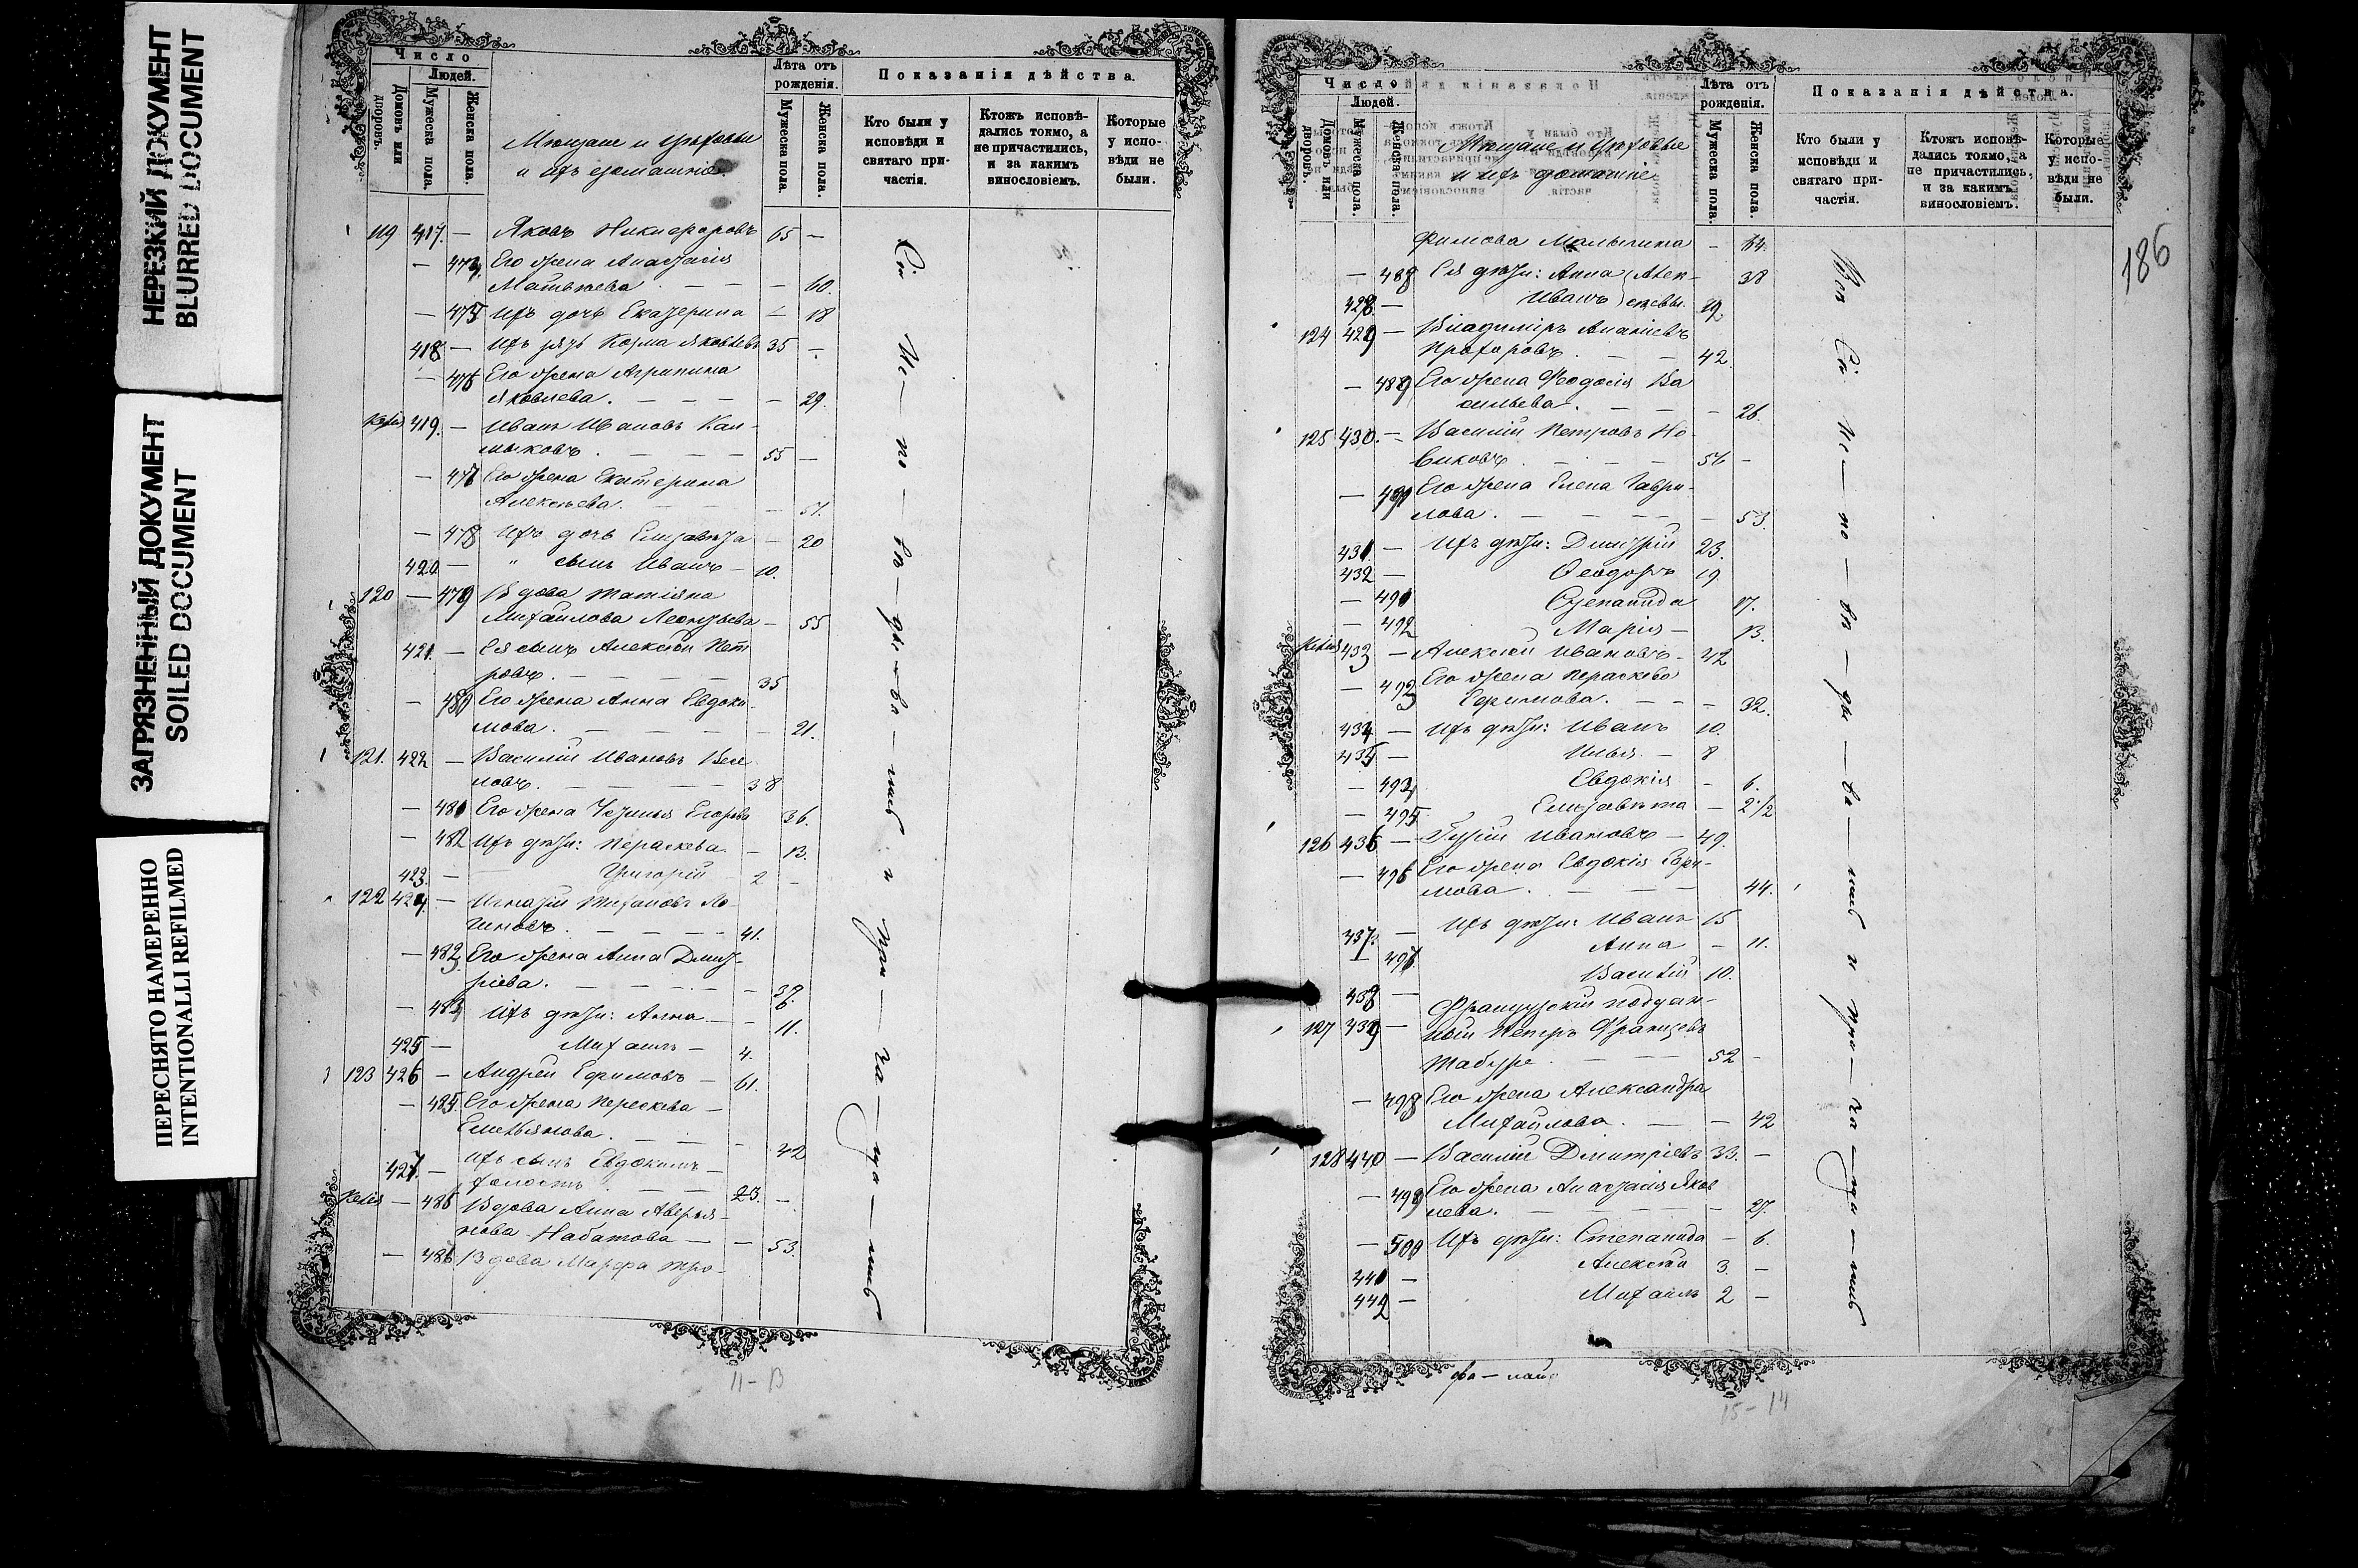 НЕРЕЗКИЙ ДОКУМЕНТ
BLURRED DOCUMENT
ЗАГРЯЗНЕННЫЙ ДОКУМЕНТ
SOILED DOCUMENT
ПЕРЕСНЯТО НАМЕРЕННО
INTENTIONALLI REFILMED
Число
Людей.
Домовъ или дворовъ.
Мужеска пола.
Женска пола.
Мещане и Цеховые
и ихъ домашніе
Лѣта отъ рожденія.
Мужеска пола.
Женска пола.
Показанія дѣйства.
Кто были у исповѣди и святаго при-частія.
Ктожъ исповѣ-дались токмо, а не причастились, и за какимъ винословіемъ.
Которые у испо-вѣди не были.
119 417. — Яковъ Никифоровъ 65 —
— 474 Его жена Анастасія
Матвѣева — — — 60.
— 475 Ихъ дочь Екатерина — 18
418 — Ихъ зять Козма Яковлевъ 35 —
— 476 Его жена Агрипина
Яковлева. — — — — 29.
419. — Иванъ Ивановъ Кал-
мыковъ. — — — 55 —
— 477 Его жена Екатерина
Алексѣева. — — 51.
— 478 Ихъ дочь Елизавета — 20
420 — " сынъ Иванъ — 10.
120 — 479 Вдова Татіяна
Михайлова Леонтьева — 55
421. — Ея сынъ Алексѣй Пет
ровъ. — — — — 35
— 480 Его жена Анна Евдоки-
мова. — — — — 21.
121. 422 — Василій Ивановъ
ловъ. — — — — 38
— 481 Его жена Егорова 36.
— 482 Ихъ дѣти: Параскева — 13.
423. — Григорій — 2 —
122 424. — Игнатій
гиновъ. — — — — 41.
— 483. Его жена Анна Дмит-
ріева. — — — — — 39.
— 484 Ихъ дѣти: Анна — — 11.
425 — Михаилъ — 4.
123 426 — Андрей Ефимовъ — 61.
— 485. Его жена Параскева —
Емельянова. — — — 42
427. — Ихъ сынъ Евдокимъ —
холостъ — — 23. —
— 486 Вдова Анна Аверья-
нова Набатова — — 53.
— 486 Вдова Марфа Тро-
Сіи
Ис — по — вѣ — ды — ва — лись и при — ча — ща — лись
11 - 13
186
Число
Людей.
Домовъ или дворовъ.
Мужеска пола.
Женска пола.
Мещане и Цеховые
и ихъ домашніе
Лѣта отъ рожденія.
Мужеска пола.
Женска пола.
Показанія дѣйства.
Кто были у исповѣди и святаго при-частія.
Ктожъ исповѣ-дались токмо, а не причастились, и за какимъ винословіемъ.
Которые у испо-вѣди не были.
фимова Малыгина — 64.
— 488 Ея дѣти: Анна Алек- 38
428. — Иванъ сѣевы. 19.
124 429 — Владиміръ Ананіевъ
Прохоровъ. — — 42
— 489 Его жена Феодосія Ва
сильева. — — — 26.
125 430. — Василій Петровъ Но-
виковъ — — — 56 —
— 491 Его жена Елена Гаври-
лова. — — — — — 53.
431. — Ихъ дѣти: Димитрій 23.
432 — Феодоръ 19
— 490 Степанида 17.
— 492 Марія — 13.
433 — Алексѣй Ивановъ — 42
— 493 Его жена Параскева
Ефимова. — — — 32.
434 — Ихъ дѣти: Иванъ 10.
435 — Илья — 8
— 494 Евдокія — 6.
— 495. Елизавета — 2 1/2
126 436 — Гурій Ивановъ — 49.
— 496 Его жена Евдокія Ефи-
мова. — — — 44.
437. — Ихъ дѣти: Иванъ 15
— 497. Анна — 11.
438 — Василій 10.
127 439 — Французскій поддан-
ный Петръ Францевъ
Табуре. — — 52 —
— 498 Его жена Александра
Михайлова. — — 42
128 440 — Василій Дмитріевъ 33. —
— 499 Его жена Анастасія Яков
лева. — — — — — 27.
— 500 Ихъ дѣти: Степанида — 6.
441 — Алексѣй 3. —
442 — Михаилъ 2 —
Всѣ Сіи Ис — по — вѣ — ды — ва — лись и при — ча — ща — лись
15 - 14